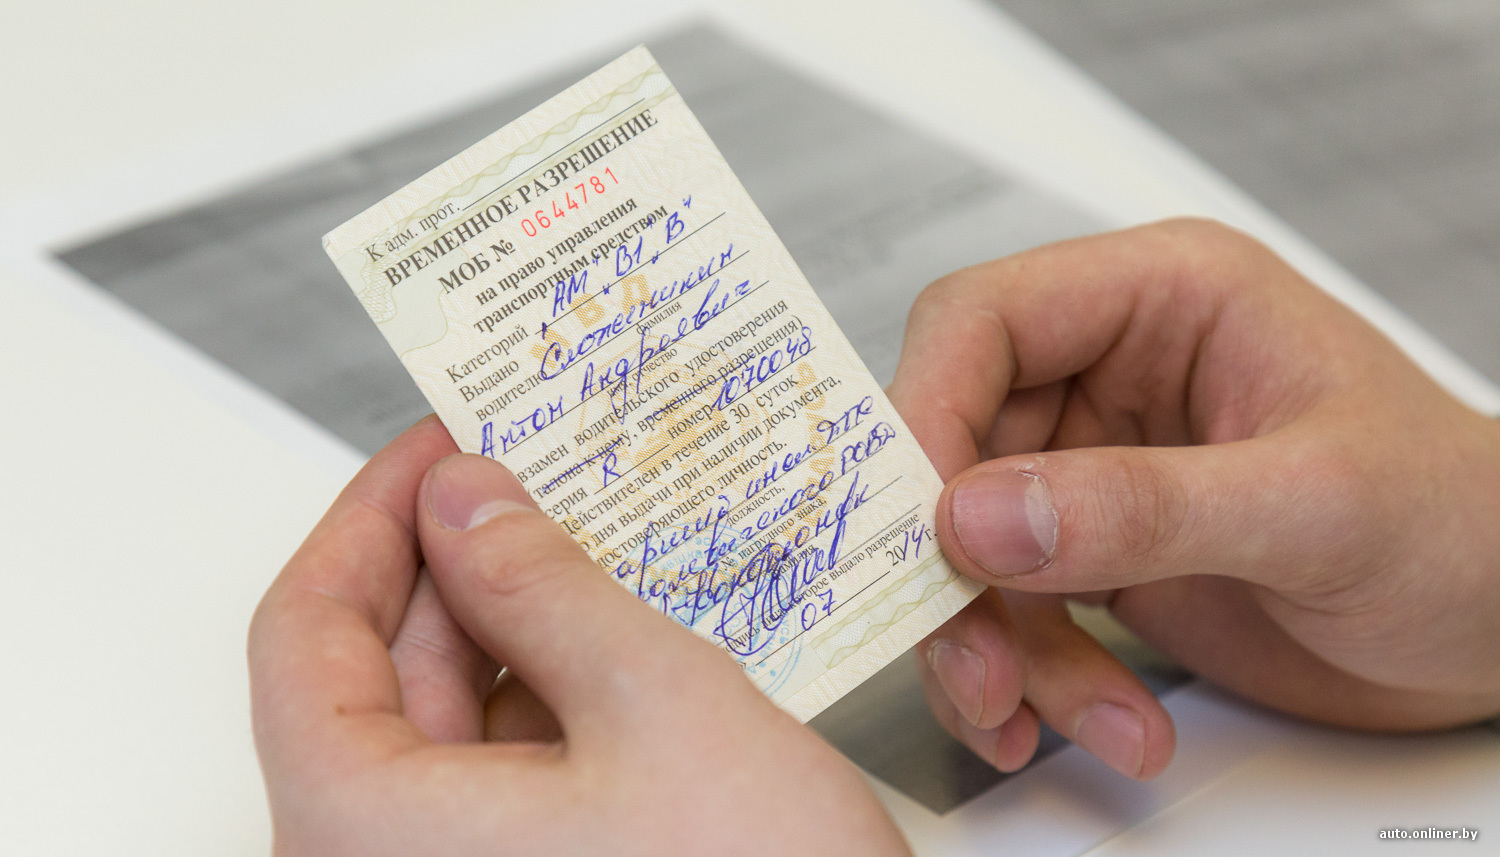 К адм. прот.
ВРЕМЕННОЕ РАЗРЕШЕНИЕ
МОБ № 0644781
на право управления
транспортным средством
Категорий „АМ" „В1" „В"
Выдано
водителю
фамилия
Антон Андреевич
отчество
взамен водительского удостоверения
(талона к нему, временного разрешения)
серия R номер 1070048
Действителен в течение 30 суток
со дня выдачи при наличии документа,
удостоверяющего личность.
должность,
РОВД
№ нагрудного знака,
фамилия
которое выдало разрешение
07 2014 г.
auto.onliner.by